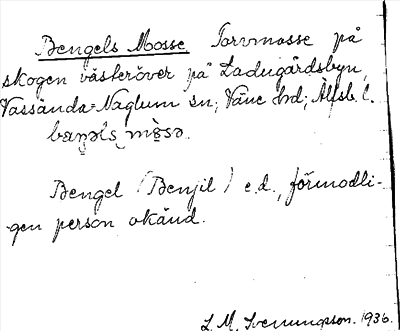 Bengels Mosse Torvmosse på
skogen västeröver på Ladugårdsbyn,
Vassända-Naglum sn; Väne hd; Älfsb. l.
baŋəls mòsə.
Bengel (Benjil) e.d., förmodli-
gen person okänd.
L. M. Svenungsson. 1936.